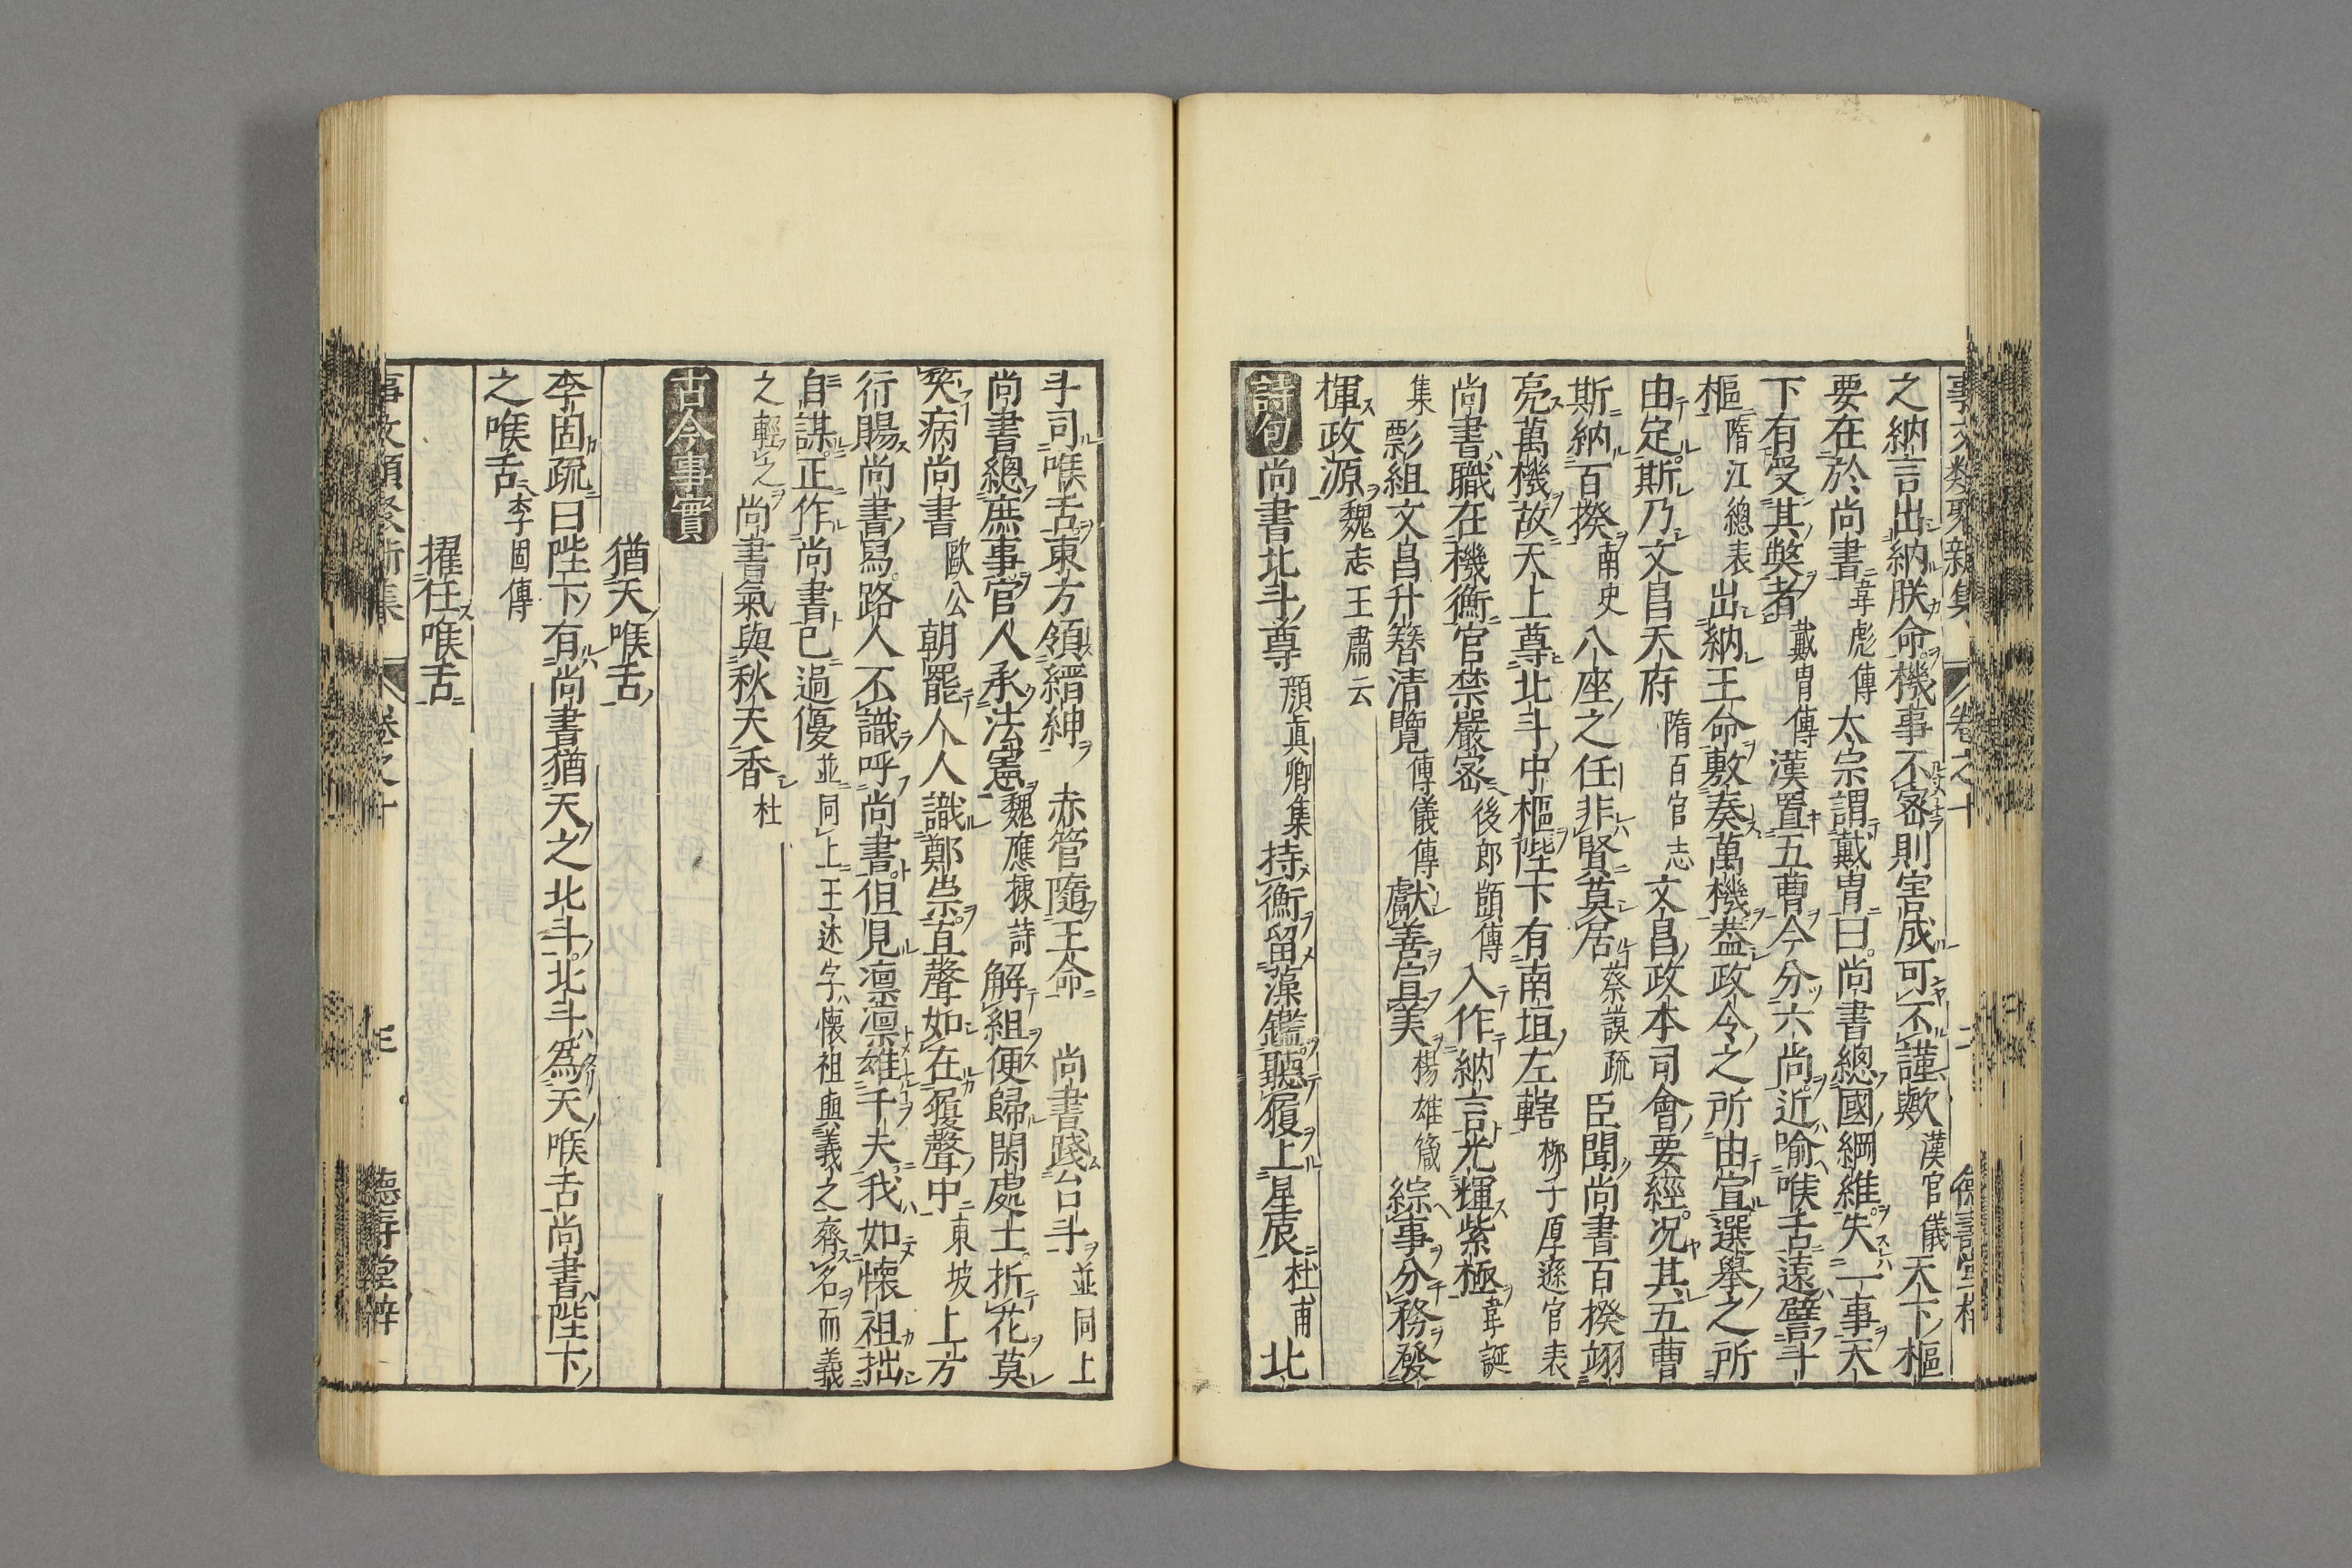 之納言出納朕命機事不密則害成可不謹歟漢官儀天下樞
要在於尚書韋彪傳太宗謂戴胄曰尚書總國綱維失一事天
下有受其獘者戴胄傳漢置五曹今分六尚近喻喉舌遠譬斗
樞隋江總表出納王命敷奏萬機蓋政令之所由宣選舉之所
由定斯乃文昌天府隋百官志文昌政本司會要經况其五曹
斯納百揆南史八座之任非賢莫居蔡謨疏臣聞尚書百揆翊
亮萬機故天上尊北斗中樞陛下有南垣左轄柳子厚遜官表
尚書職在機衡官禁嚴密後郎顗傳入作納言光輝紫極韋誕
集彯組文昌升簪清覽傅儀傳獻善宣美楊雄箴綜事分務發
揮政源魏志王肅云
詩句尚書北斗尊顏眞卿集持衡留藻鑑聽履上星辰杜甫北
斗司喉舌東方領縉紳赤管隨王命尚書踐台斗並同上
尚書總庶事官人承法憲魏應璩詩解組便歸閑處士折花莫
笑病尚書歐公朝罷人人識鄭崇直聲如在履聲中東坡上方
行賜尚書舄路人不識呼尚書但見凛凛雄千夫我如懷祖拙
自謀正作尚書已過優並同上王述字懷祖與義之齊名而義
之輕之尚書氣與秋天香杜
古今事實
猶天喉舌
李固疏曰陛下有尚書猶天之北斗北斗爲天喉舌尚書陛下
之喉舌李固傳
擢任喉舌